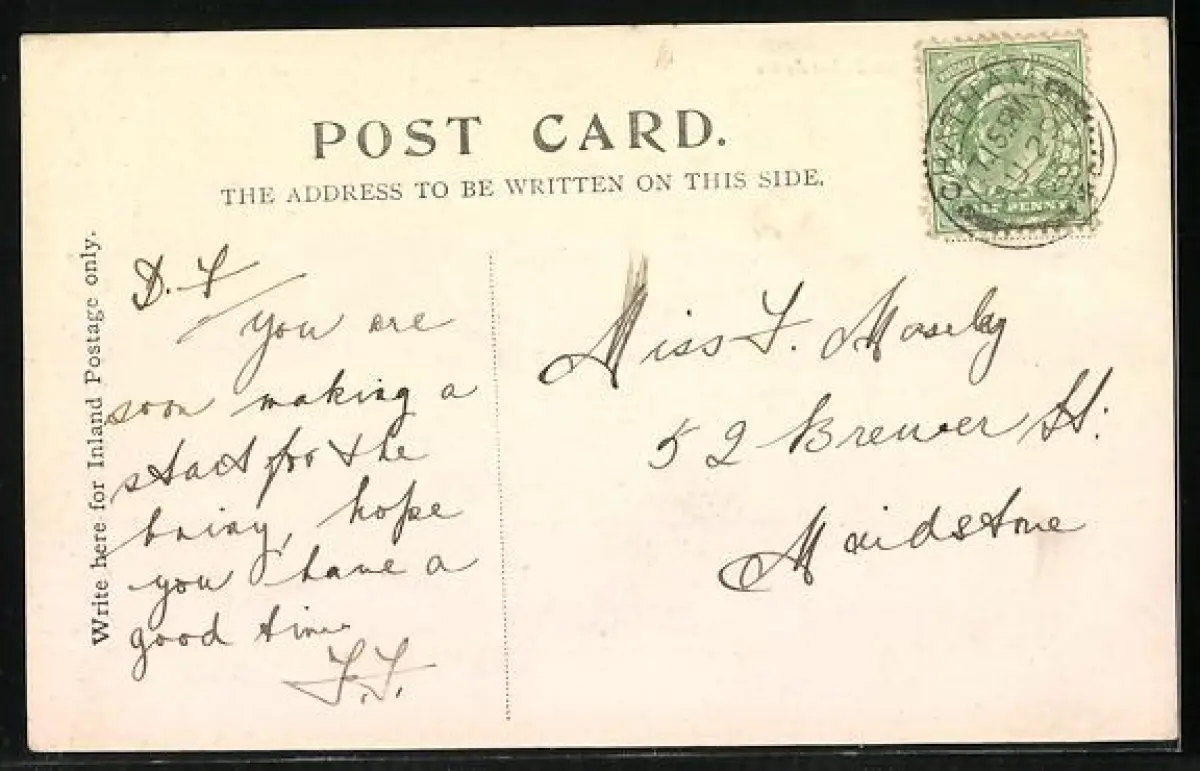 POST CARD.
THE ADDRESS TO BE WRITTEN ON THIS SIDE.
Write here for Inland Postage only.
CHATHAM
7.15 PM
HALF PENNY
D. F
You are
soon making a
start for the
briny, hope
you have a
good time
F.F.
Miss F. Moseley
52 Brewer St.
Maidstone